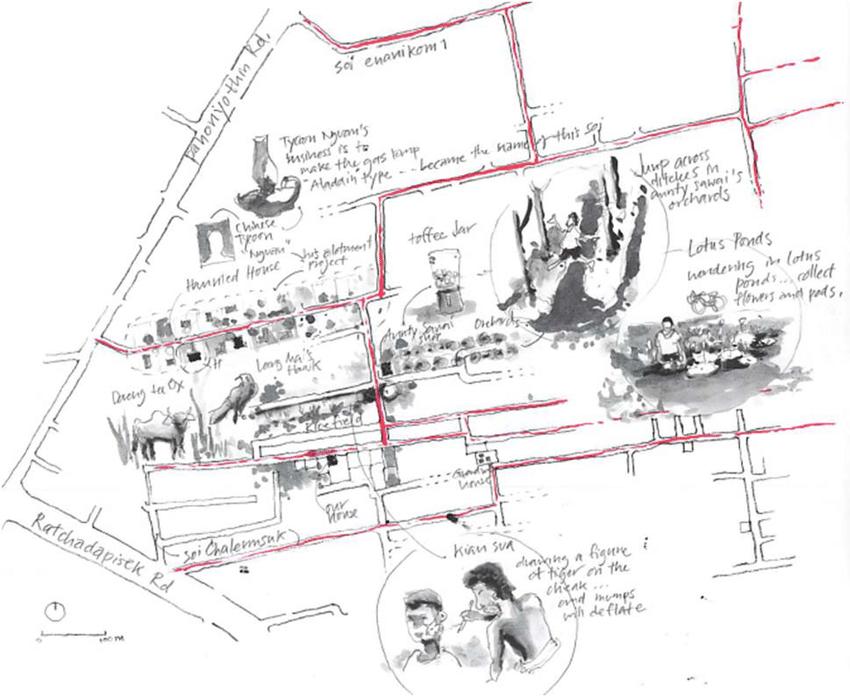 soi enanikom 1
Pahonyothin Rd.
Tycon Nguan's
business is to
make the gas lamp
"Aladdin" type ... became the name of this soi
Chinese
Tycoon
"Nguan"
his allotment
project
Haunted House
toffee jar
Jump across
ditches in
aunty Sawai's
orchards
Lotus Ponds
wandering in lotus
ponds... collect
flowers and pods.
Aunty Sawai
Orchards
H
Long Mai's
Hawk
Daeng the Ox
Ricefield
House
our
House
soi Chalermsuk
Ratchadapisek Rd
Kian sua
drawing a figure
of tiger on the
cheak...
and mumps
will deflate
0
100 m